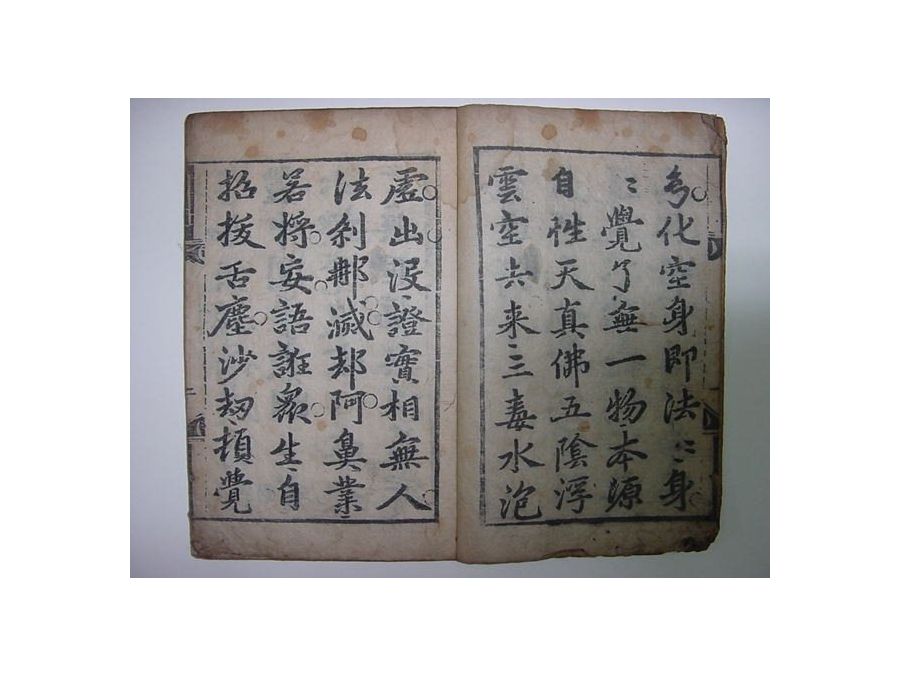 幻化空身即法〻身
〻覺了無一物本源
自性天真佛五陰浮
雲空去来三毒水泡
虛出没證實相無人
法刹那滅却阿鼻業
若將妄語誑衆生自
招拔舌塵沙劫頓覺